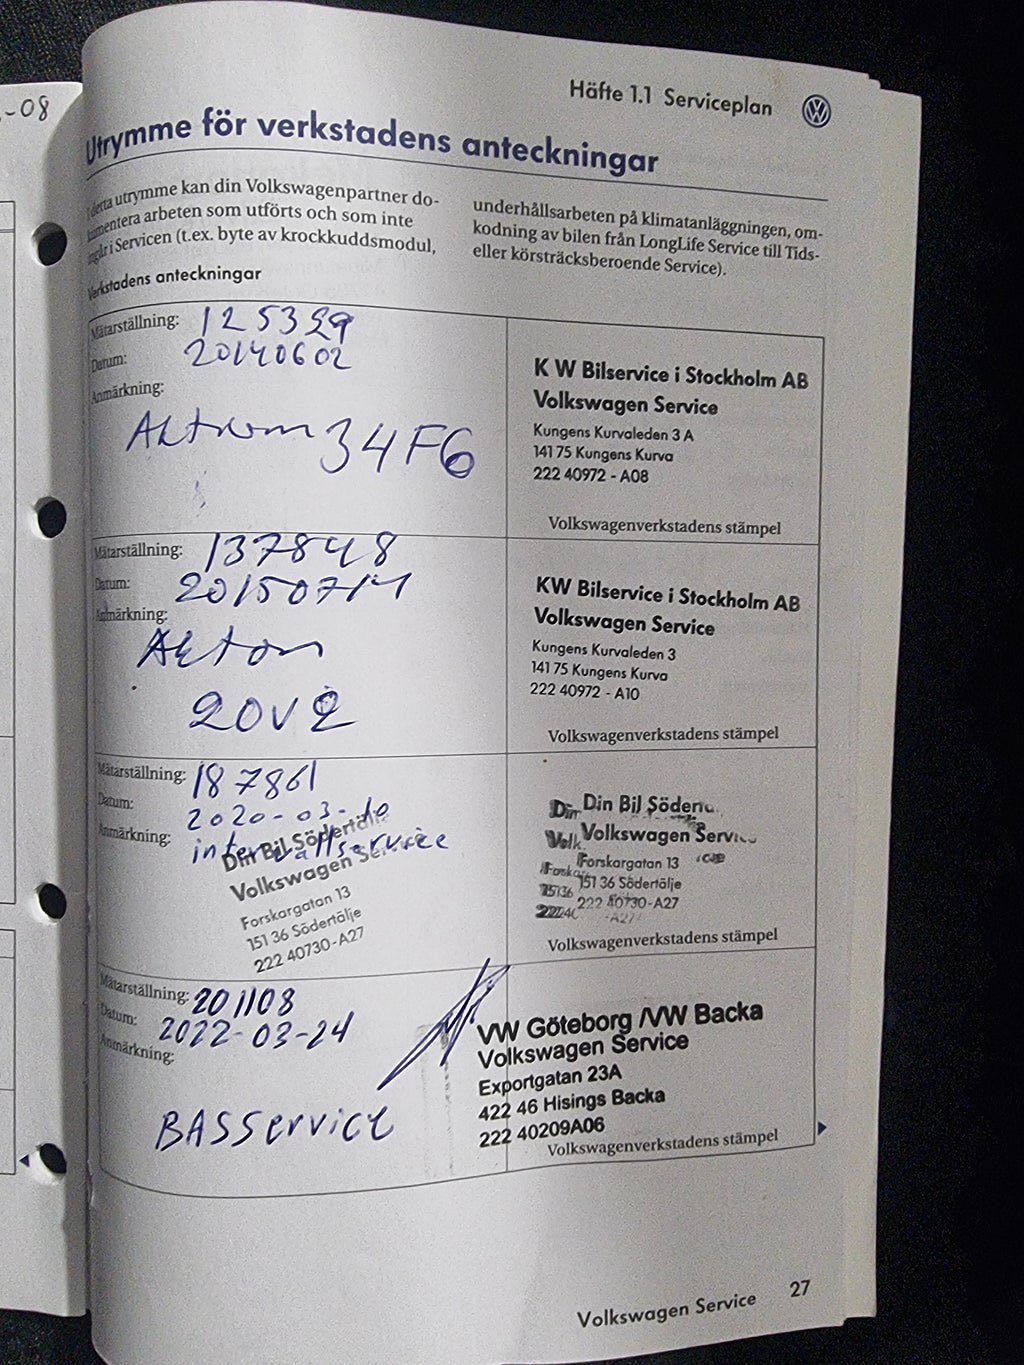 -08
Häfte 1.1 Serviceplan
Utrymme för verkstadens anteckningar
I detta utrymme kan din Volkswagenpartner do-
kumentera arbeten som utförts och som inte
ingår i Servicen (t.ex. byte av krockkuddsmodul,
underhållsarbeten på klimatanläggningen, om-
kodning av bilen från LongLife Service till Tids-
eller körsträcksberoende Service).
Verkstadens anteckningar
Mätarställning: 125329
Datum: 20140602
Anmärkning:
34F6
K W Bilservice i Stockholm AB
Volkswagen Service
Kungens Kurvaleden 3 A
141 75 Kungens Kurva
222 40972 - A08
Volkswagenverkstadens stämpel
Mätarställning: 137848
Datum: 20150714
Anmärkning:
20V2
KW Bilservice i Stockholm AB
Volkswagen Service
Kungens Kurvaleden 3
141 75 Kungens Kurva
222 40972 - A10
Volkswagenverkstadens stämpel
Mätarställning: 187861
Datum: 2020-03-10
Anmärkning: intervallservice
Din Bil Södertälje
Volkswagen Service
Forskargatan 13
151 36 Södertälje
222 40730-A27
Din Bil Södertä
Volkswagen Service
Forskargatan 13
151 36 Södertälje
222 40730-A27
Volkswagenverkstadens stämpel
Mätarställning: 201108
Datum: 2022-03-24
Anmärkning:
BASService
VW Göteborg /VW Backa
Volkswagen Service
Exportgatan 23A
422 46 Hisings Backa
222 40209A06
Volkswagenverkstadens stämpel
Volkswagen Service 27